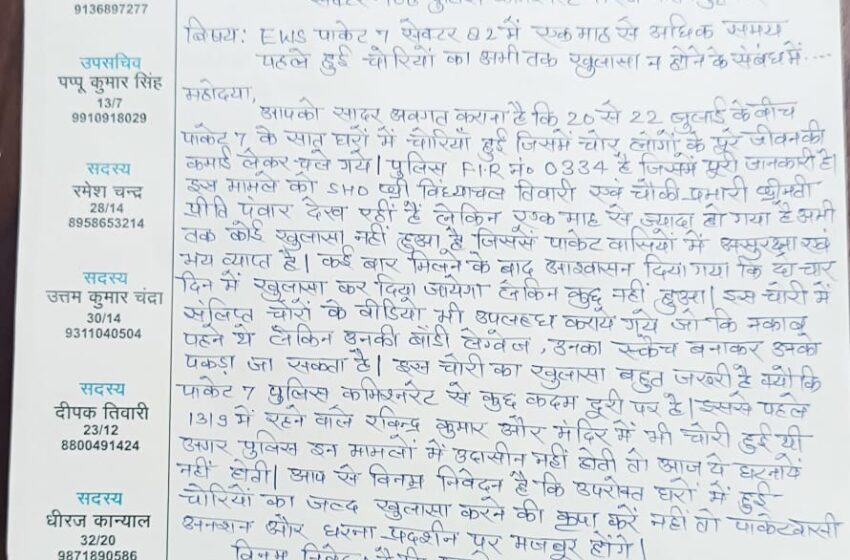 9136897277
उपसचिव
पप्पू कुमार सिंह
13/7
9910918029
सदस्य
रमेश चन्द्र
28/14
8958653214
सदस्य
उत्तम कुमार चंदा
30/14
9311040504
सदस्य
दीपक तिवारी
23/12
8800491424
सदस्य
धीरज कान्याल
32/20
9871890586
विषय: EWS पाकेट 7 सेक्टर 82 में एक माह से अधिक समय
पहले हुई चोरियों का अभी तक खुलासा न होने के संबंध में....
महोदया,
आपको सादर अवगत कराना है कि 20 से 22 जुलाई के बीच
पाकेट 7 के सात घरों में चोरियाँ हुई जिसमें चोर लोगों के पूरे जीवन की
कमाई लेकर चले गये। पुलिस F.I.R नं० 0334 है जिसमें पूरी जानकारी है।
इस मामले को SHO श्री विंध्याचल तिवारी एवं चौकी प्रभारी श्रीमती
प्रीति पंवार देख रहीं हैं लेकिन एक माह से ज्यादा हो गया है अभी
तक कोई खुलासा नहीं हुआ है जिससे पाकेट वासियों में असुरक्षा एवं
भय व्याप्त है। कई बार मिलने के बाद आश्वासन दिया गया कि दो चार
दिन में खुलासा कर दिया जायेगा लेकिन कुछ नहीं हुआ। इस चोरी में
संलिप्त चोरों के वीडियो भी उपलब्ध कराये गये जो कि नकाब
पहने थे लेकिन उनकी बॉडी लेंग्वेज, उनका स्कैच बनाकर उनको
पकड़ा जा सकता है। इस चोरी का खुलासा बहुत जरूरी है क्यों कि
पाकेट 7 पुलिस कमिश्नरेट से कुछ कदम दूरी पर है। इससे पहले
13/9 में रहने वाले रविन्द्र कुमार और मंदिर में भी चोरी हुई थी
अगर पुलिस इन मामलों में उदासीन नहीं होती तो आज ये घटनायें
नहीं होती। आप से विनम्र निवेदन है कि उपरोक्त घरों में हुई
चोरियों का जल्द खुलासा करने की कृपा करें नहीं तो पाकेटवासी
अनशन और धरना-प्रदर्शन पर मजबूर होंगे।